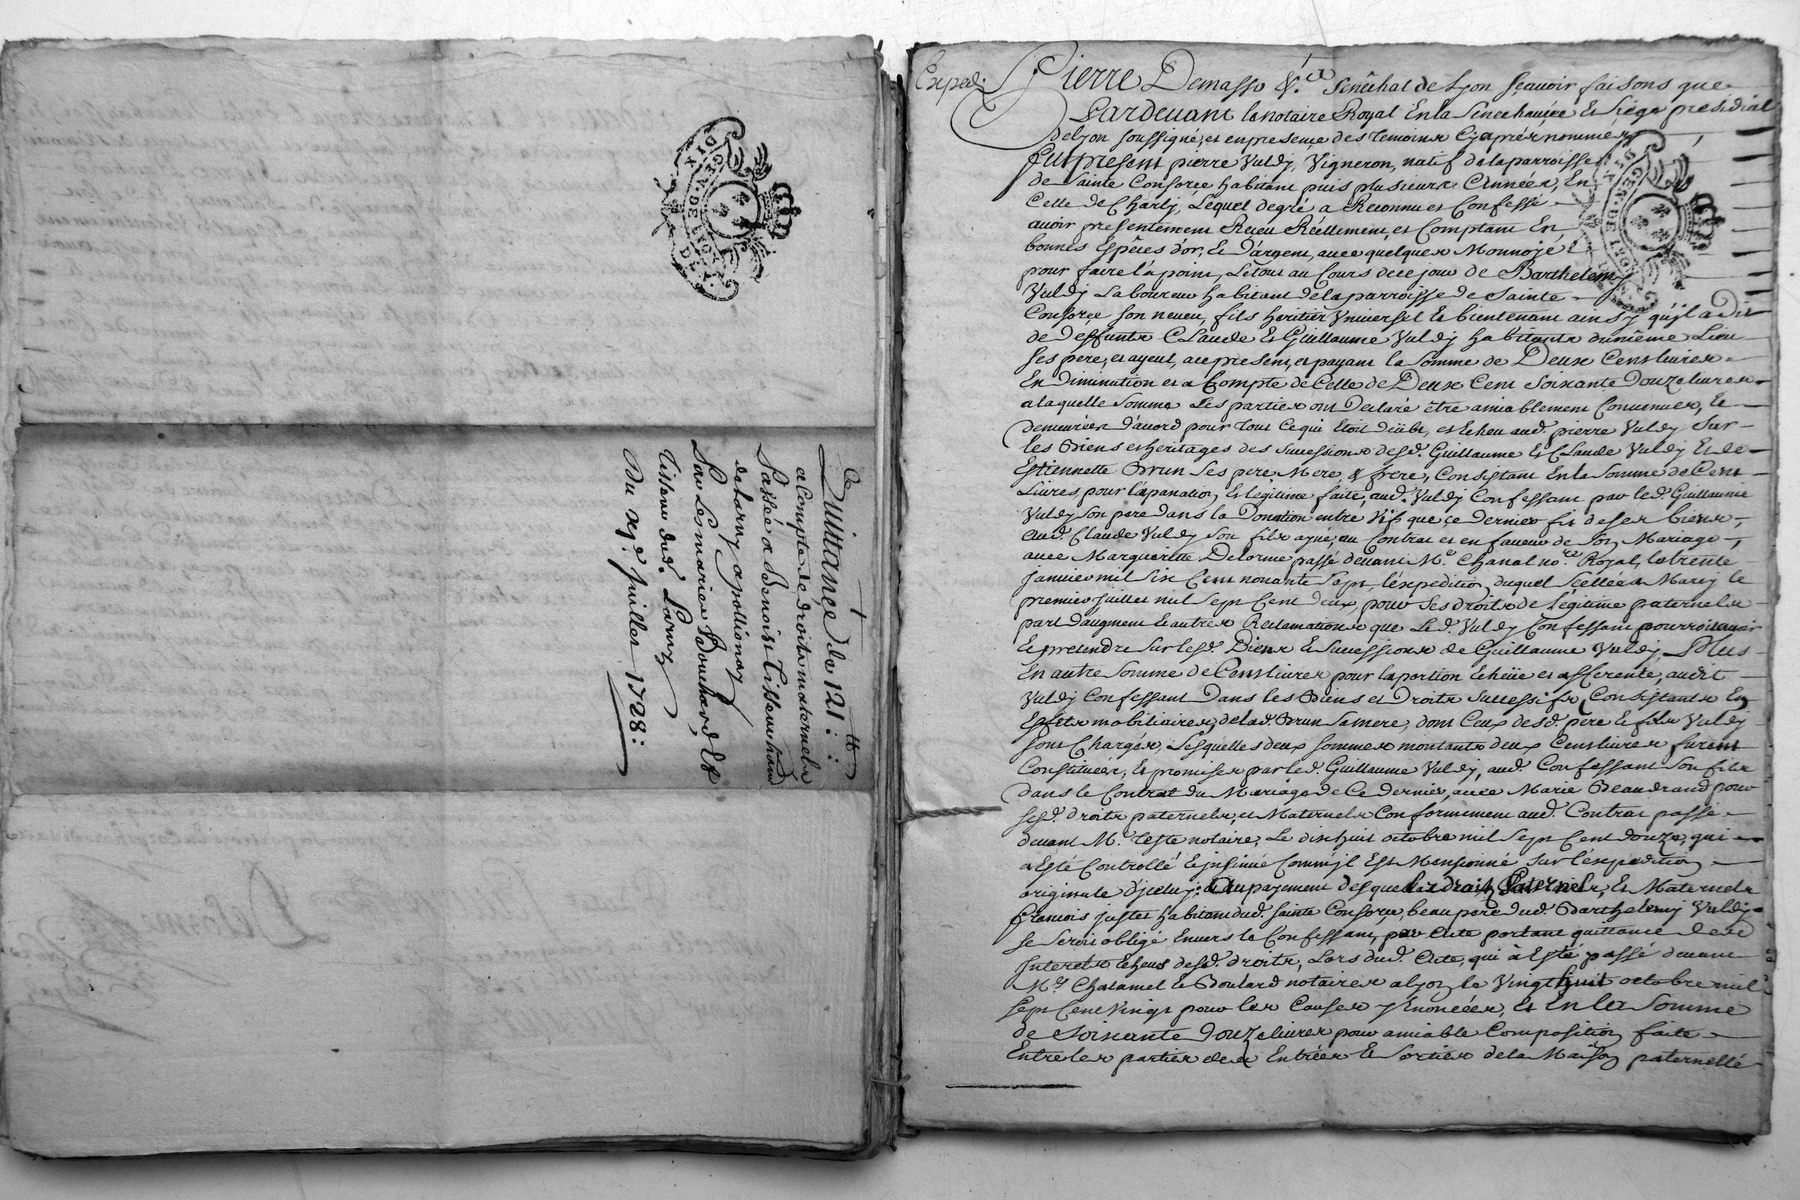 GEN. DE LYON
DIX
DE
Quittance de 121 ₶ :
a Compte de droits maternels
Passée a Benoist Tisseur hab.
de Larny apollinard
Par les mariés Bouchard, Et
Tisseur dud. Larny
Du xj.e Juillet 1728 :
Delorme
Exped:
Pierre Demasso &.ca Senêchal de Lyon sçavoir faisons que
Pardevant le notaire Royal En la Senechaucée Et Siége presidial
de Lyon soussigné, et en presençe des temoins Cy aprés nommez
Fut present pierre Valdy, Vigneron, natif de la parroisse
de Sainte Consorçe habitant puis plusieurs Années, En
Celle de Charly, Lequel de gré a Reconnu et Confessé
avoir presentement Reçeu Réellement, et Comptant En
bonnes Espêces d'or, Et D'argent, avec quelques Monnoyé
pour faire l'apoint, Le tout au Cours de ce jour de Barthelemy
Valdy Laboureur habitant de la parroisse de Sainte
Consorçe son neveu, fils heritier Universel Et bientenant ainsy qu'jl a Dit
de deffunts Claude Et Guillaume Valdy habitants du même Lieu
ses pere, et ayeul, a ce present, et payant la Somme de Deux Cent livres
En Diminution et a Compte de Celle de Deux Cent Soixante Douze livres
a laquelle Somme Les parties ont Declaré être amiablement Convenues, Et
demeurées d'acord pour tout Ce qui Etoit dûbt, et Echeu aud. pierre Valdy Sur
les Biens et heritages des Successions desd. Guillaume Et Claude Valdy Et de
Estiennette Brun Ses pere, Mere & frere, Consistant En la Somme de Cent
Livres, pour l'apanation, Et légitime faite, aud. Valdy Confessant par led. Guillaume
Valdy son pere dans la Donation entre Vifs que çe dernier fit de ses biens,
aud. Claude Valdy Son fils ayné, au Contrat et en faveur de Son Mariage
avec Marguerite Delorme passé devant M.e Chanal no.re Royal, le trente
janvier mil Six Cent nonante Sept, l'expedition duquel Scellée a Marcy le
premier juillet mil Sept Cent deux, pour Ses droits de légitime paternels
part d'augment Et autres Reclamations que Led. Valdy Confessant pourroit avoir
Et pretendre sur lesd. Biens Et Successions de Guillaume Valdy, Plus
En autre Somme de Cent livres pour la portion Echeüe et afferente, audit
Valdy Confessant Dans les Biens et Droits Successifs Consistants En
Effets mobiliaires, de lad. Brun Sa mere, dont Ceux desd. pere Et fils Valdy
sont Chargés, Lesquelles deux sommes montants deux Cent livres furent
Constituées, Et promises par led. Guillaume Valdy, aud. Confessant Son fils
dans le Contrat du Mariage de Ce dernier, avec Marie Beaudrand pour
sesd. droits paternels, et Maternels Conformement aud. Contrat passé
devant M.e Teste notaire, Le dix huit octobre mil Sept Cent douze, qui
a Esté Controllé Et jnsinué Comm'jl Est Mentionné sur l'expedition
originale d'jceluy: au payement desquels droits Paternels, Et Maternels
François juste habitant dud. Sainte Consorçe, beaupere dud. Barthelemy Valdy
se seroit obligé Envers le Confessant, par Acte portant quittance des
Interets Echeus desd. droits, Lors dud. Acte, qui a Esté passé devant
M.es Chalamel Et Boulard notaires a Lyon, le Vingt huit octobre mil
sept Cent Vingt pour les Causes y Enoncées, Et En la Somme
de Soixante Douze livres pour amiable Composition faite
Entre les parties des Entrées Et Sorties de la Maison paternelle